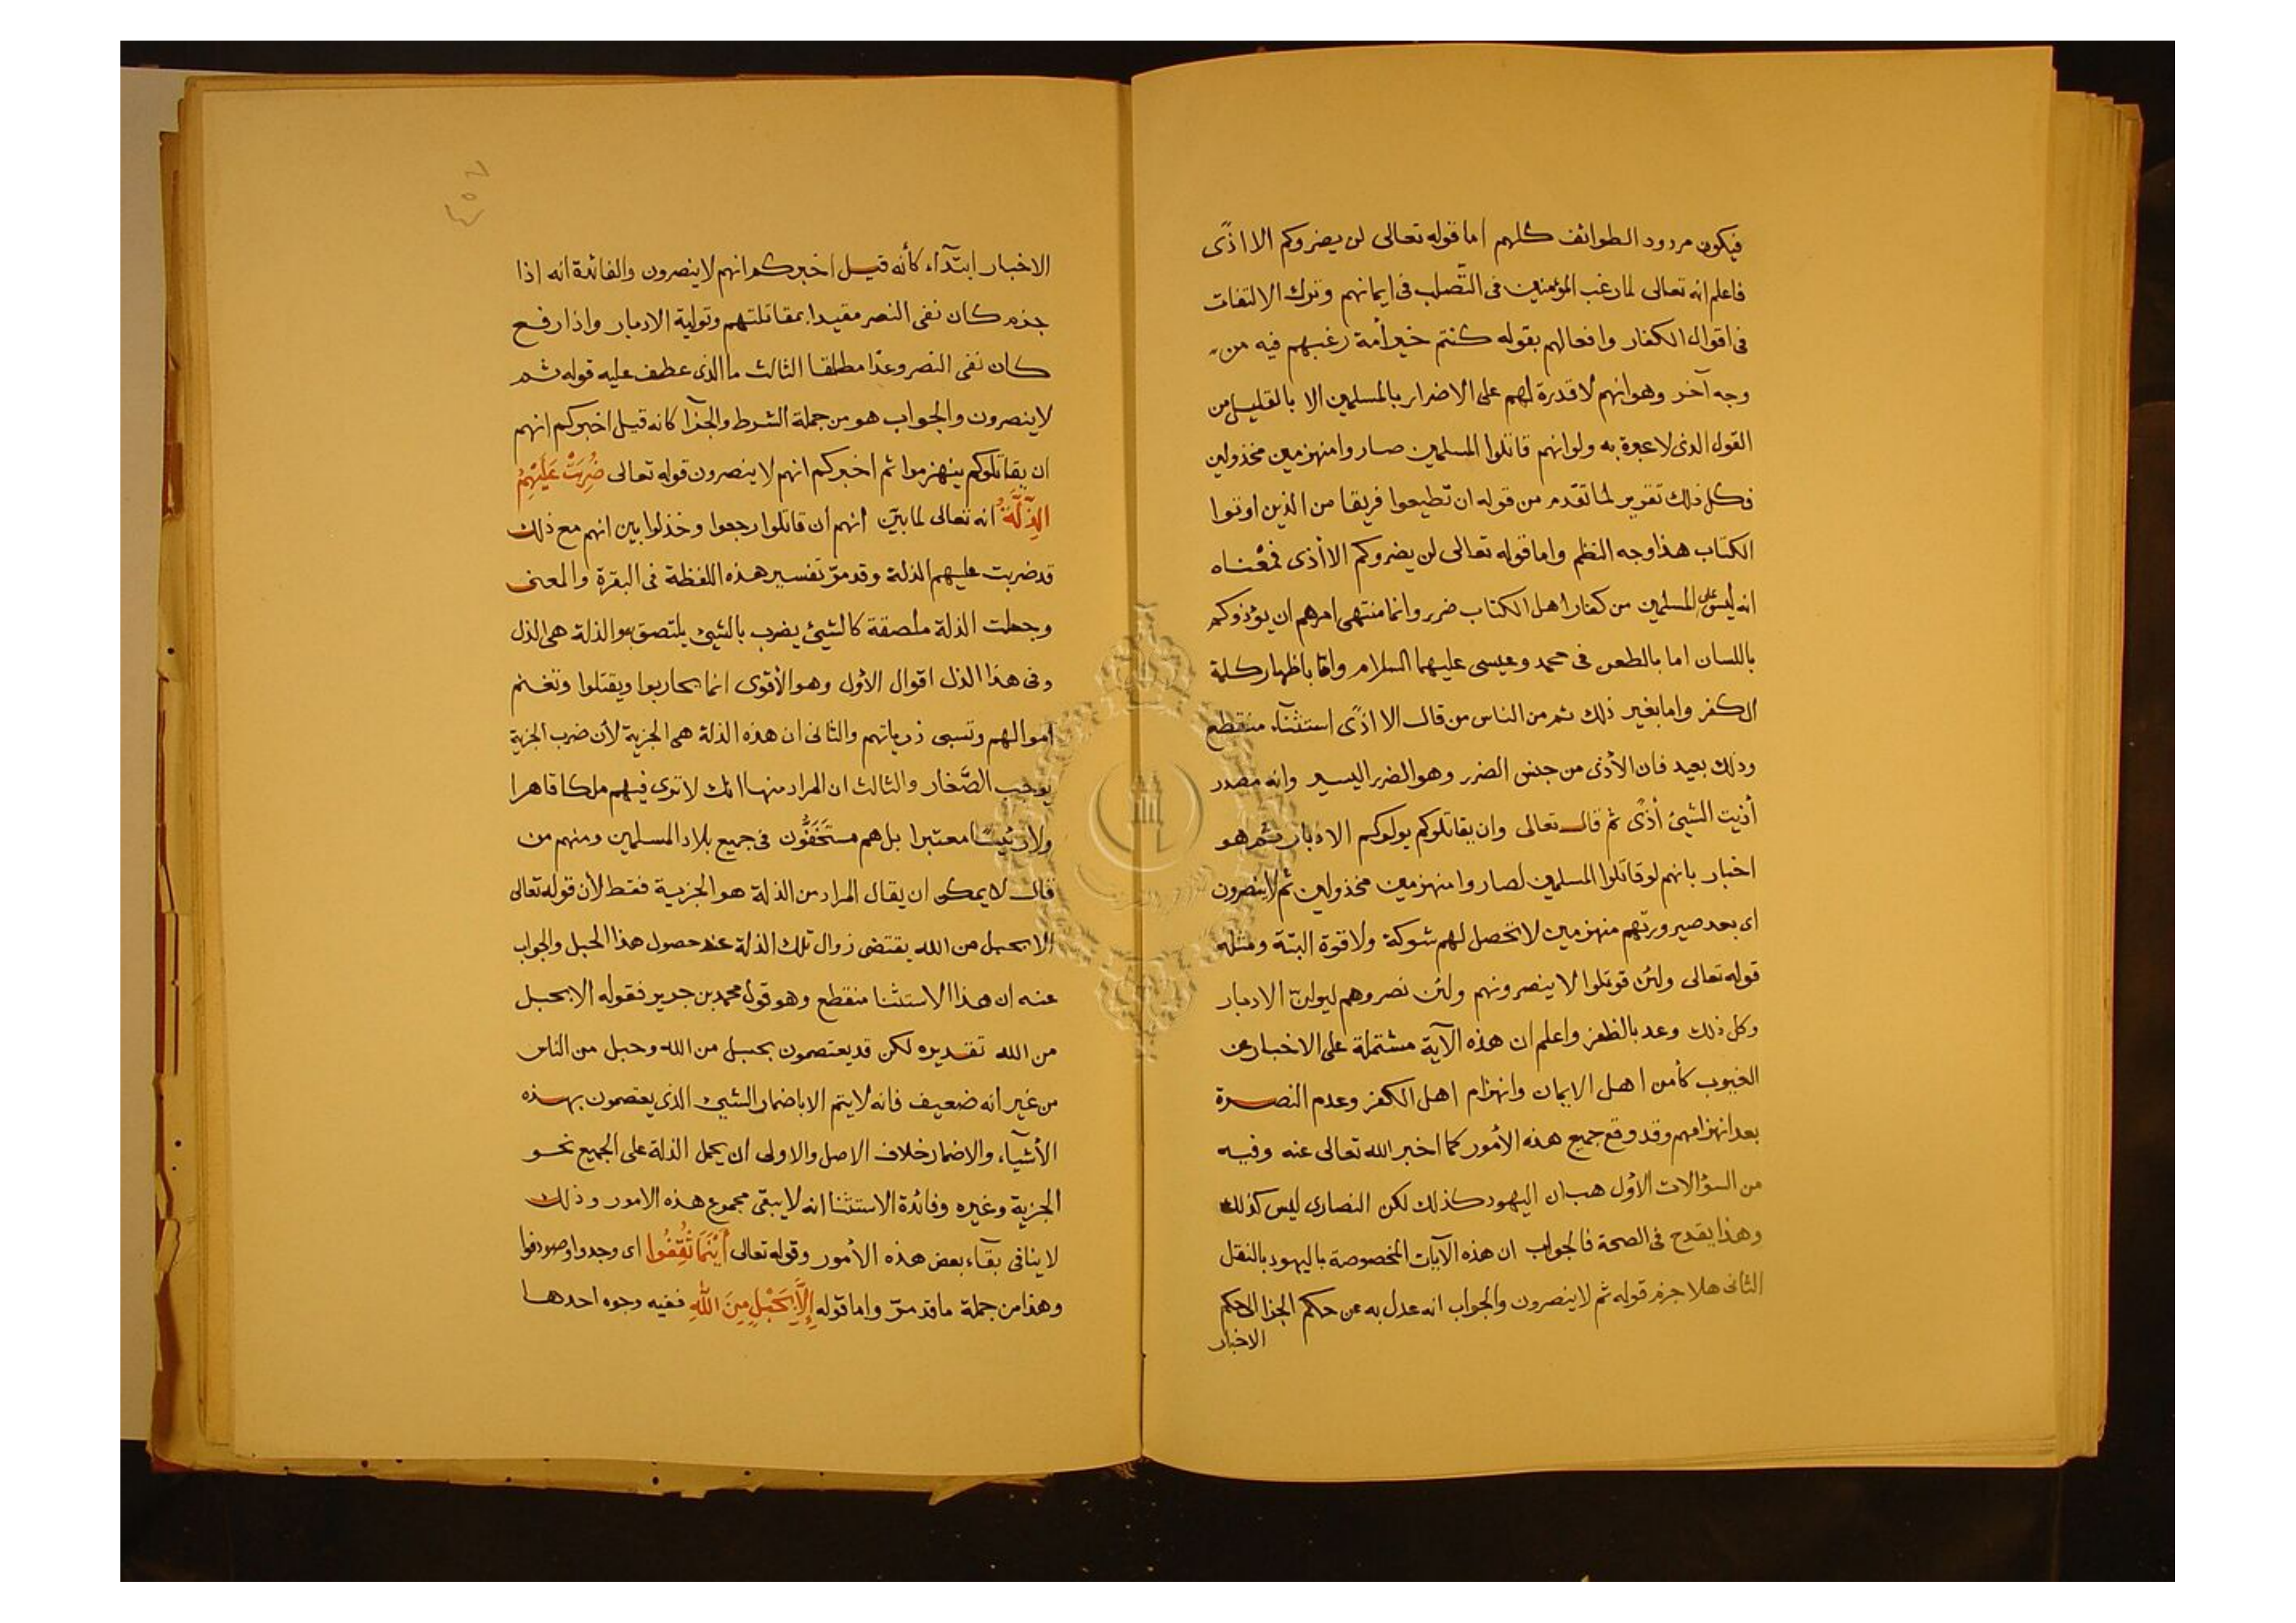 فيكون مردود الطوائف كلهم اما قوله تعالى لن يضروكم الا اذًى
فاعلم انه تعالى لما رغب المؤمنين فى التّصلب فى ايمانهم وترك الالتفات
فى اقوال الكفار وافعالهم بقوله كنتم خير أمة رغبهم فيه من
وجه آخر وهو انهم لا قدرة لهم على الاضرار بالمسلمين الا بالقليل من
القول الذى لا عبرة به ولو انهم قاتلوا المسلمين صاروا منهزمين مخذولين
وكل ذلك تقرير لما تقدم من قوله ان تطيعوا فريقا من الذين اوتوا
الكتاب هذا وجه النظم واما قوله تعالى لن يضروكم الا أذى فمعْناه
انه ليس على المسلمين من كفار اهل الكتاب ضرر وانما منتهى امرهم ان يؤذوكم
باللسان اما بالطعن فى محمد وعيسى عليهما السلام واما باظهار كلمة
الكفر واما بغير ذلك ثم من الناس من قال الا اذًى استثنآء منقطع
وذلك بعيد فان الأذى من جنس الضرر وهو الضرر اليسير وانه مصدر
أذيت الشيئ أذًى ثم قال تعالى وان يقاتلوكم يولوكم الادبار ثم هو
اخبار بانهم لو قاتلوا المسلمين لصاروا منهزمين مخذولين ثم لا ينصرون
اى بعد صيرورتهم منهزمين لا تحصل لهم شوكة ولا قوة البتة ومثله
قوله تعالى ولئن قوتلوا لا ينصرونهم ولئن نصروهم ليولنّ الادبار
وكل ذلك وعد بالظفر واعلم ان هذه الآية مشتملة على الاخبار عن
الغيوب كأمن اهل الايمان وانهزام اهل الكفر وعدم النصرة
بعد انهزامهم وقد وقع جميع هذه الأمور كما اخبر الله تعالى عنه وفيه
من السؤالات الأول هب ان اليهود كذلك لكن النصارى ليس كذلك
وهذا يقدح فى الصحة فالجواب ان هذه الآيات المخصوصة باليهود بالنقل
الثانى هلا جزم قوله ثم لا ينصرون والجواب انه عدل به عن حكم الجزا الى حكم
الاخبار
٤٥٧
الاخبار ابتدآء كأنه قيل اخبركم انهم لا ينصرون والفائدة انه اذا
جزم كان نفى النصر مقيدا بمقاتلتهم وتولية الادبار واذا رفع
كان نفى النصر وعدًا مطلقا الثالث ما الذى عطف عليه قوله ثم
لا ينصرون والجواب هو من جملة الشرط والجزآ كانه قيل اخبركم انهم
ان يقاتلوكم ينهزموا ثم اخبركم انهم لا ينصرون قوله تعالى ضُرِبَتْ عَلَيْهِمُ
الذِّلَّةُ انه تعالى لما بيّن انهم ان قاتلوا رجعوا وخذلوا بين انهم مع ذلك
قد ضربت عليهم الذلة وقد مرّ تفسير هذه اللفظة فى البقرة والمعنى
وجعلت الذلة ملصقة كالشيئ يضرب بالشيئ يلتصق به والذلة هى الذل
وفى هذا الذل اقوال الأول وهو الأقوى انما يحاربوا ويقتلوا وتغنم
اموالهم وتسبى ذرياتهم والثانى ان هذه الذلة هى الجزية لأن ضرب الجزية
يوجب الصَّغار والثالث ان المراد منها انك لا ترى فيهم ملكا قاهرا
ولا رئيسًا معتبرا بل هم مستَخَفُّون فى جميع بلاد المسلمين ومنهم من
قال لا يمكن ان يقال المراد من الذلة هو الجزية فقط لأن قوله تعالى
الا بحبل من الله يقتضى زوال تلك الذلة عند حصول هذا الحبل والجواب
عنه ان هذا الاستثنا منقطع وهو قول محمد بن جرير فقوله الا بحبل
من الله تقديره لكن قد يعتصمون بحبل من الله وحبل من الناس
من غير انه ضعيف فانه لا يتم الا باضمار الشيئ الذى يعتصمون بهذه
الأشيآء والاضمار خلاف الاصل والاولى ان يحمل الذلة على الجميع نحو
الجزية وغيره وفائدة الاستثنا انه لا يبقى مجموع هذه الامور وذلك
لا ينافى بقآء بعض هذه الأمور وقوله تعالى أَيْنَمَا ثُقِفُوا اى وجدوا وصودفوا
وهذا من جملة ما قد مرّ واما قوله إِلَّا بِحَبْلٍ مِنَ اللَّهِ ففيه وجوه احدها